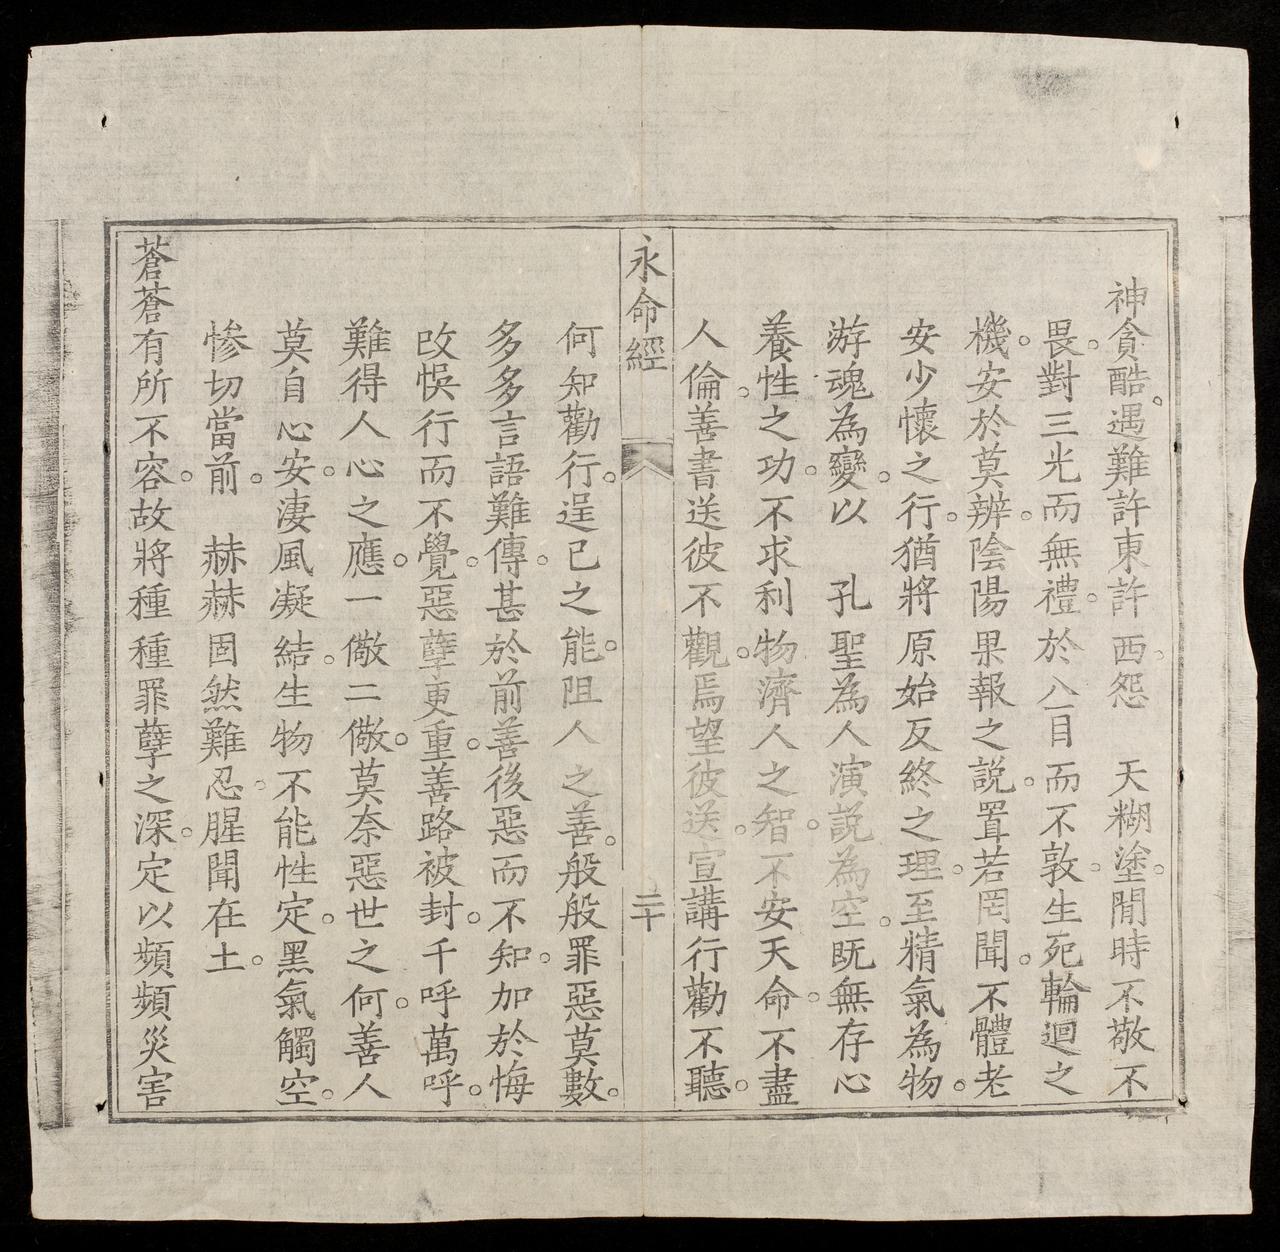 神貪酷。遇難許東許西。怨　天糊塗。閒時不敬不
畏。對三光而無禮。於八百而不敦。生死輪迴之
機。安於莫辨。陰陽果報之説。置若罔聞。不體老
安少懷之行。猶將原始反終之理。至精氣為物。
游魂為變。以　孔聖為人演説為空。既無存心
養性之功。不求利物濟人之智。不安天命。不盡
人倫。善書送彼不觀。焉望彼送。宣講行勸不聽。
永命經　二十
何知勸行。逞已之能。阻人之善。般般罪惡莫數。
多多言語難傳。甚於前善後惡而不知。加於悔
改悞行而不覺。惡孽更重。善路被封。千呼萬呼。
難得人心之應。一儆二儆。莫奈惡世之何。善人
莫自心安。淒風凝結。生物不能性定。黑氣觸空。
慘切當前。　赫赫固然難忍。腥聞在土。
蒼蒼有所不容。故將種種罪孽之深。定以頻頻災害